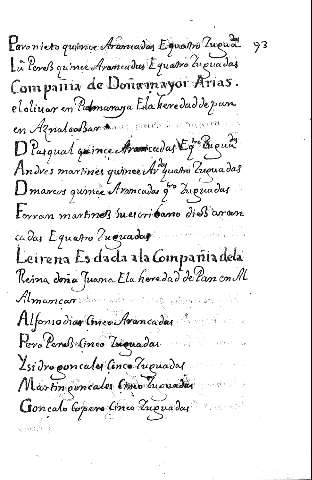 Paronieto quince Arancadas E quatro Zugadas 93
Lu Perez quince Arancadas E quatro Zuguadas
Compañia de Doña mayor Arias.
el olivar en Palmaraya E la heredad de pan
en Aznaloobar
D Pasqual quince Arancadas E qtro Zuguadas
Andres martines quince Ardas quatro Zuguadas
D marcus quince Arancadas qtro Zuguadas
Ferran martines su escribano dies aran
cadas E quatro Zuguadas
Leirena Es dada a la Compañia de la
Reina doña Juana E la heredad de Pan en Al
Almancar
Alfonso dias Cinco Arancadas
Pero Peres Cinco Zuguadas
Ysidro gonçales Cinco Zuguadas
Martin gonçales Cinco Zuguadas
Gonçalo Copero Cinco Zuguadas